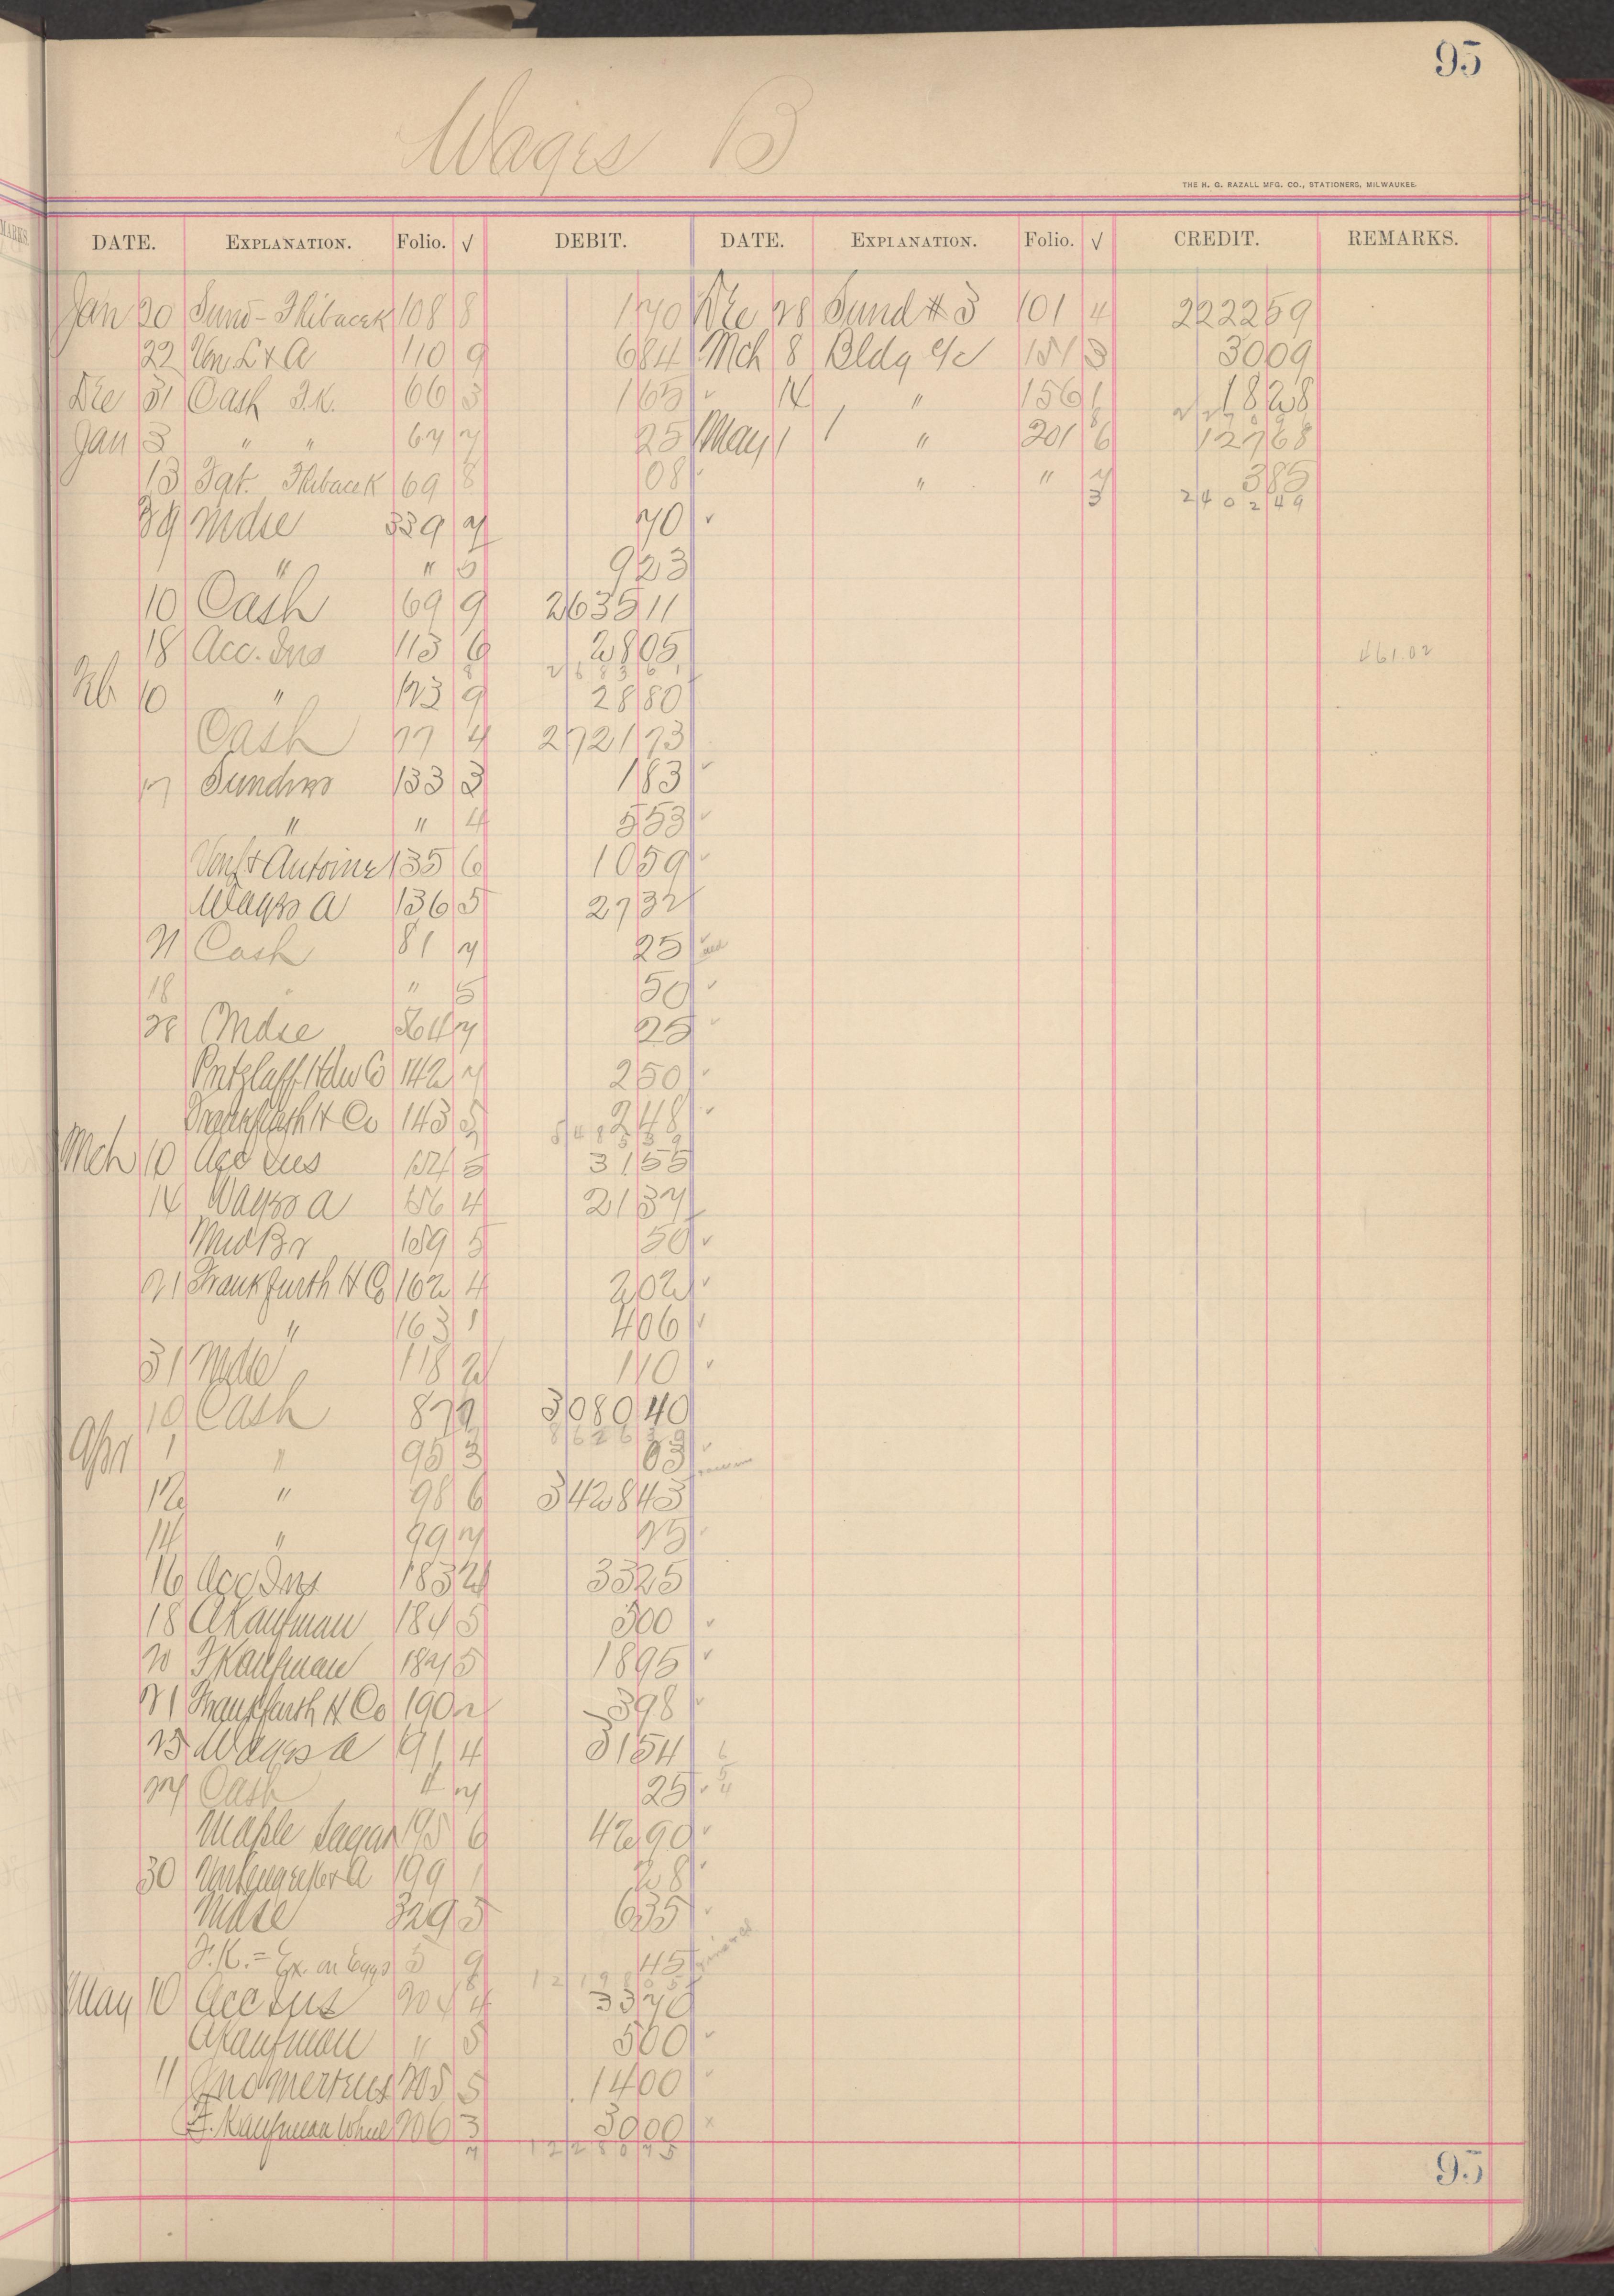 95
Wages B
THE H. G. RAZALL MFG. CO., STATIONERS, MILWAUKEE.
DATE. EXPLANATION. Folio. √ DEBIT. DATE. EXPLANATION. Folio. √ CREDIT. REMARKS.
Jan 20 108 8 1 70 Dec 28 Sund #3 101 4 2222 59
22 Von L & A 110 9 6 84 Mch 8 Bldg a/c 151 3 30 09
Dec 31 Cash F.K. 66 3 1 65 14 " 156 1 18 28
Jan 3 " " 67 7 25 May 1 " 201 6 127 68
13 69 8 08 " " 7 3 85
3 2402 49
Mdse 339 7 70
" " 5 9 23
10 Cash 69 9 2635 11
18 Acc. Ins 113 6 28 05 461.02
8 2683 61
Feb 10 " 123 9 28 80
Cash 77 4 2721 73
17 Sundries 133 3 1 83
" " 4 5 53
Von L & Antoine 135 6 10 59
Wages A 136 5 27 32
21 Cash 81 7 25
18 " 5 50
28 Mdse 564 7 25
Pritzlaff Hdw Co 142 7 2 50
Frankfurth H Co 143 5 2 48
5485 39
Mch 10 Acc Ins 154 5 31 55
14 Wages A 156 4 21 37
159 5 50
21 Frankfurth H Co 162 4 2 02
" 163 1 4 06
31 Mdse 118 2 1 10
10 Cash 87 7 3080 40
8626 39
Apr 1 " 95 3 03
12 " 98 6 3428 43
14 " 99 7 25
16 Acc Ins 183 2 33 25
18 A Kaufman 184 5 5 00
20 F Kaufman 187 5 18 95
21 Frankfurth H Co 190 2 3 98
25 Wages A 191 4 31 54
27 Cash 7 25
Maple Sugar 195 6 42 90
30 199 1 28
Mdse 329 5 6 35
F.K. = Ex. on Eggs 5 9 45
8 12198 05
May 10 Acc Ins 204 4 33 70
A Kaufman " 5 5 00
11 Jno Mertens 205 5 14 00
F. Kaufman Wheel 206 3 30 00
7 12280 75
95